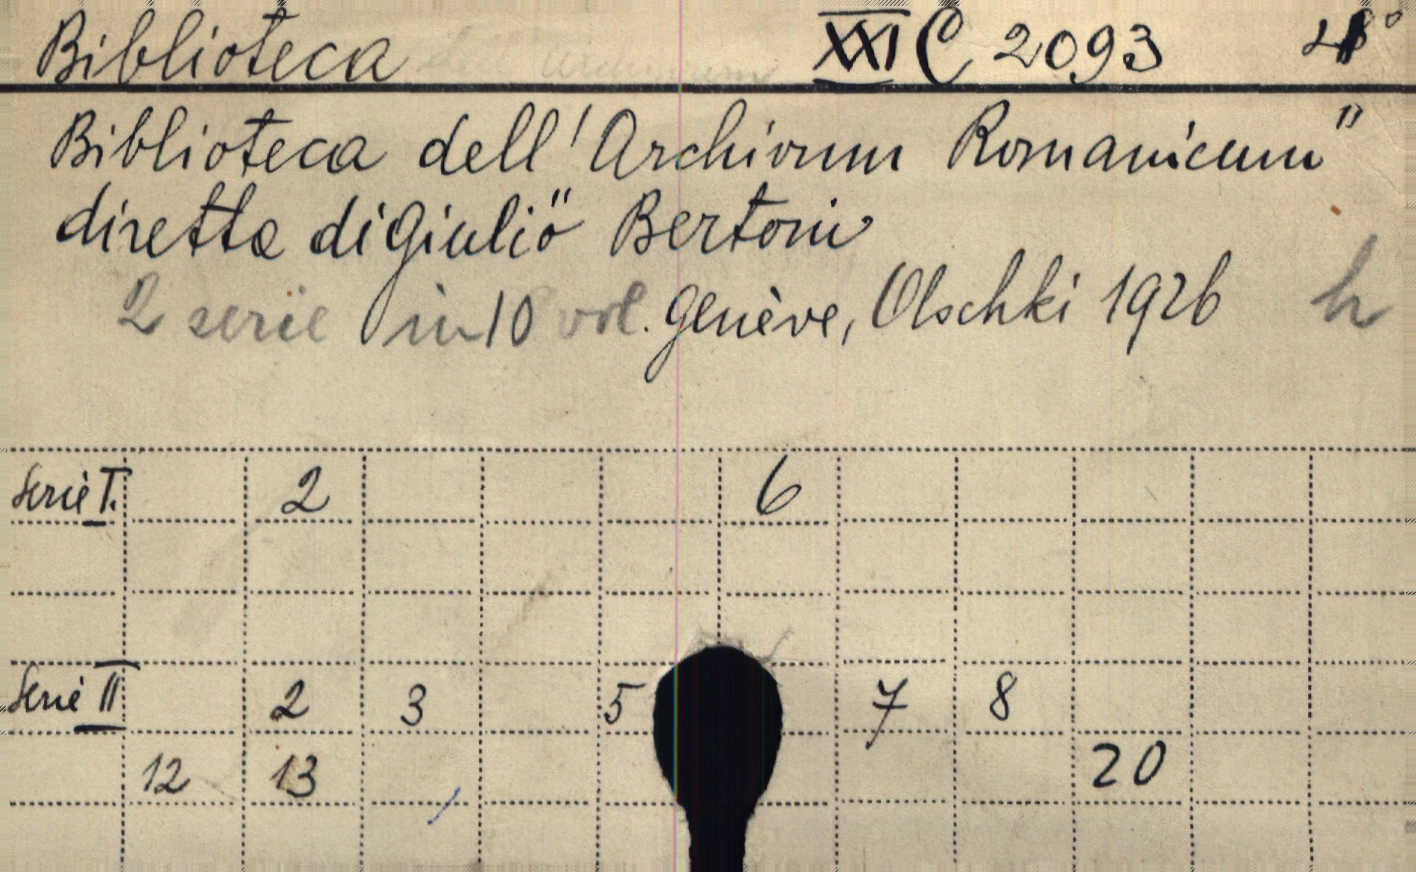 Biblioteca XXI C 2093 4°
Biblioteca dell'Archivum Romanicum"
diretta di Giulio" Bertoni
2 serie in 10 vol. Genève, Olschki 1926 h
Serie I. 2 6
Serie II 2 3 5 7 8
12 13 20